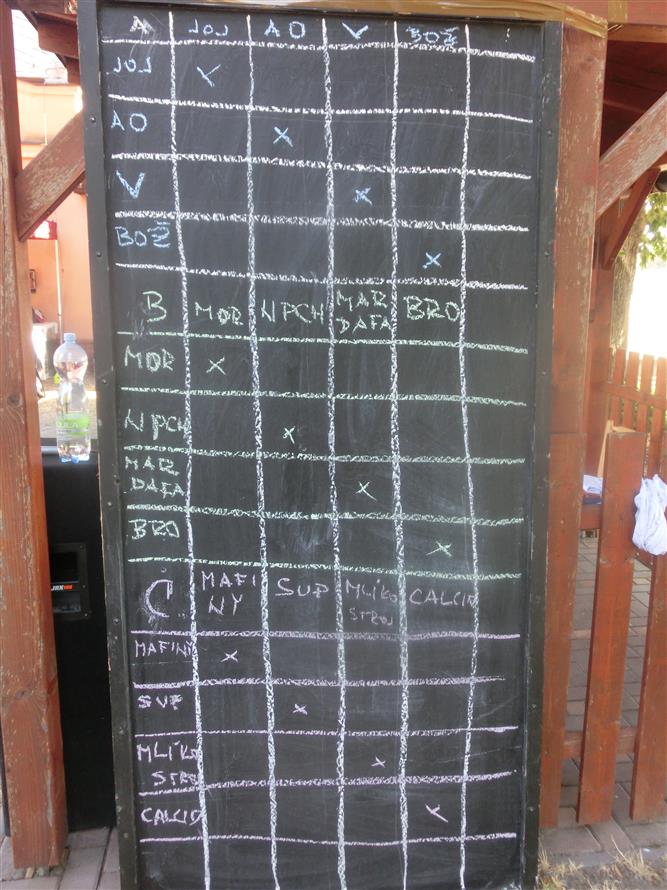 A JOJ AO V BOŽ
JOJ
AO
V
BOŽ
B MOR NPCH MAR DAFA BRO
MOR
NPCH
MAR
DAFA
BRO
C MAFI NY SUP MLÍKO STROJ CALCIO
MAFINY
SUP
MLÍKO
STROJ
CALCIO